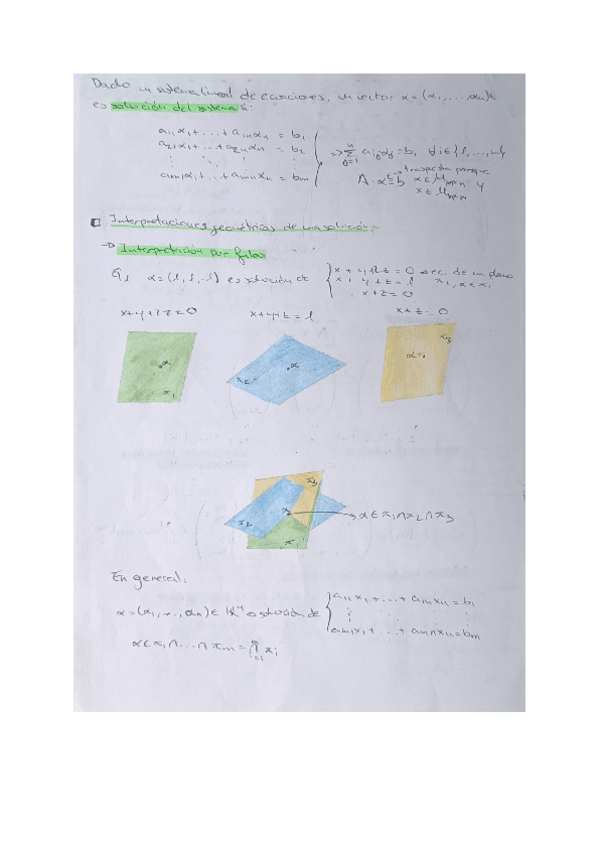 Dado un sistema lineal de ecuaciones, un vector α=(α₁,...,αₙ)∈
es solución del sistema si:
a₁₁α₁+...+a₁ₙαₙ = b₁
a₂₁α₁+...+a₂ₙαₙ = b₂
aₘ₁α₁+...+aₘₙαₙ = bₘ
⇒ Σ aᵢⱼαⱼ = bᵢ ∀i∈{1,...,m}
A·αᵗ=b → traspuesta porque
Interpretaciones geométricas de una solución
→ Interpretación por filas
Ej α=(1,1,-1) es solución de
x+y+2z=0 → ec. de un plano
x+y+z=1 π₁, α∈π₁
x+z=0
x+y+2z=0 x+y+z=1 x+z=0
·α ·α α·
π₁ π₂ π₃
π₃
π₂ α → α∈π₁∩π₂∩π₃
π₁
En general:
α=(α₁,...,αₙ)∈ℝⁿ es solución de
a₁₁x₁+...+a₁ₙxₙ=b₁
aₘ₁x₁+...+aₘₙxₙ=bₘ
α∈π₁∩...∩πₘ=⋂ᵢ₌₁ᵐ πᵢ